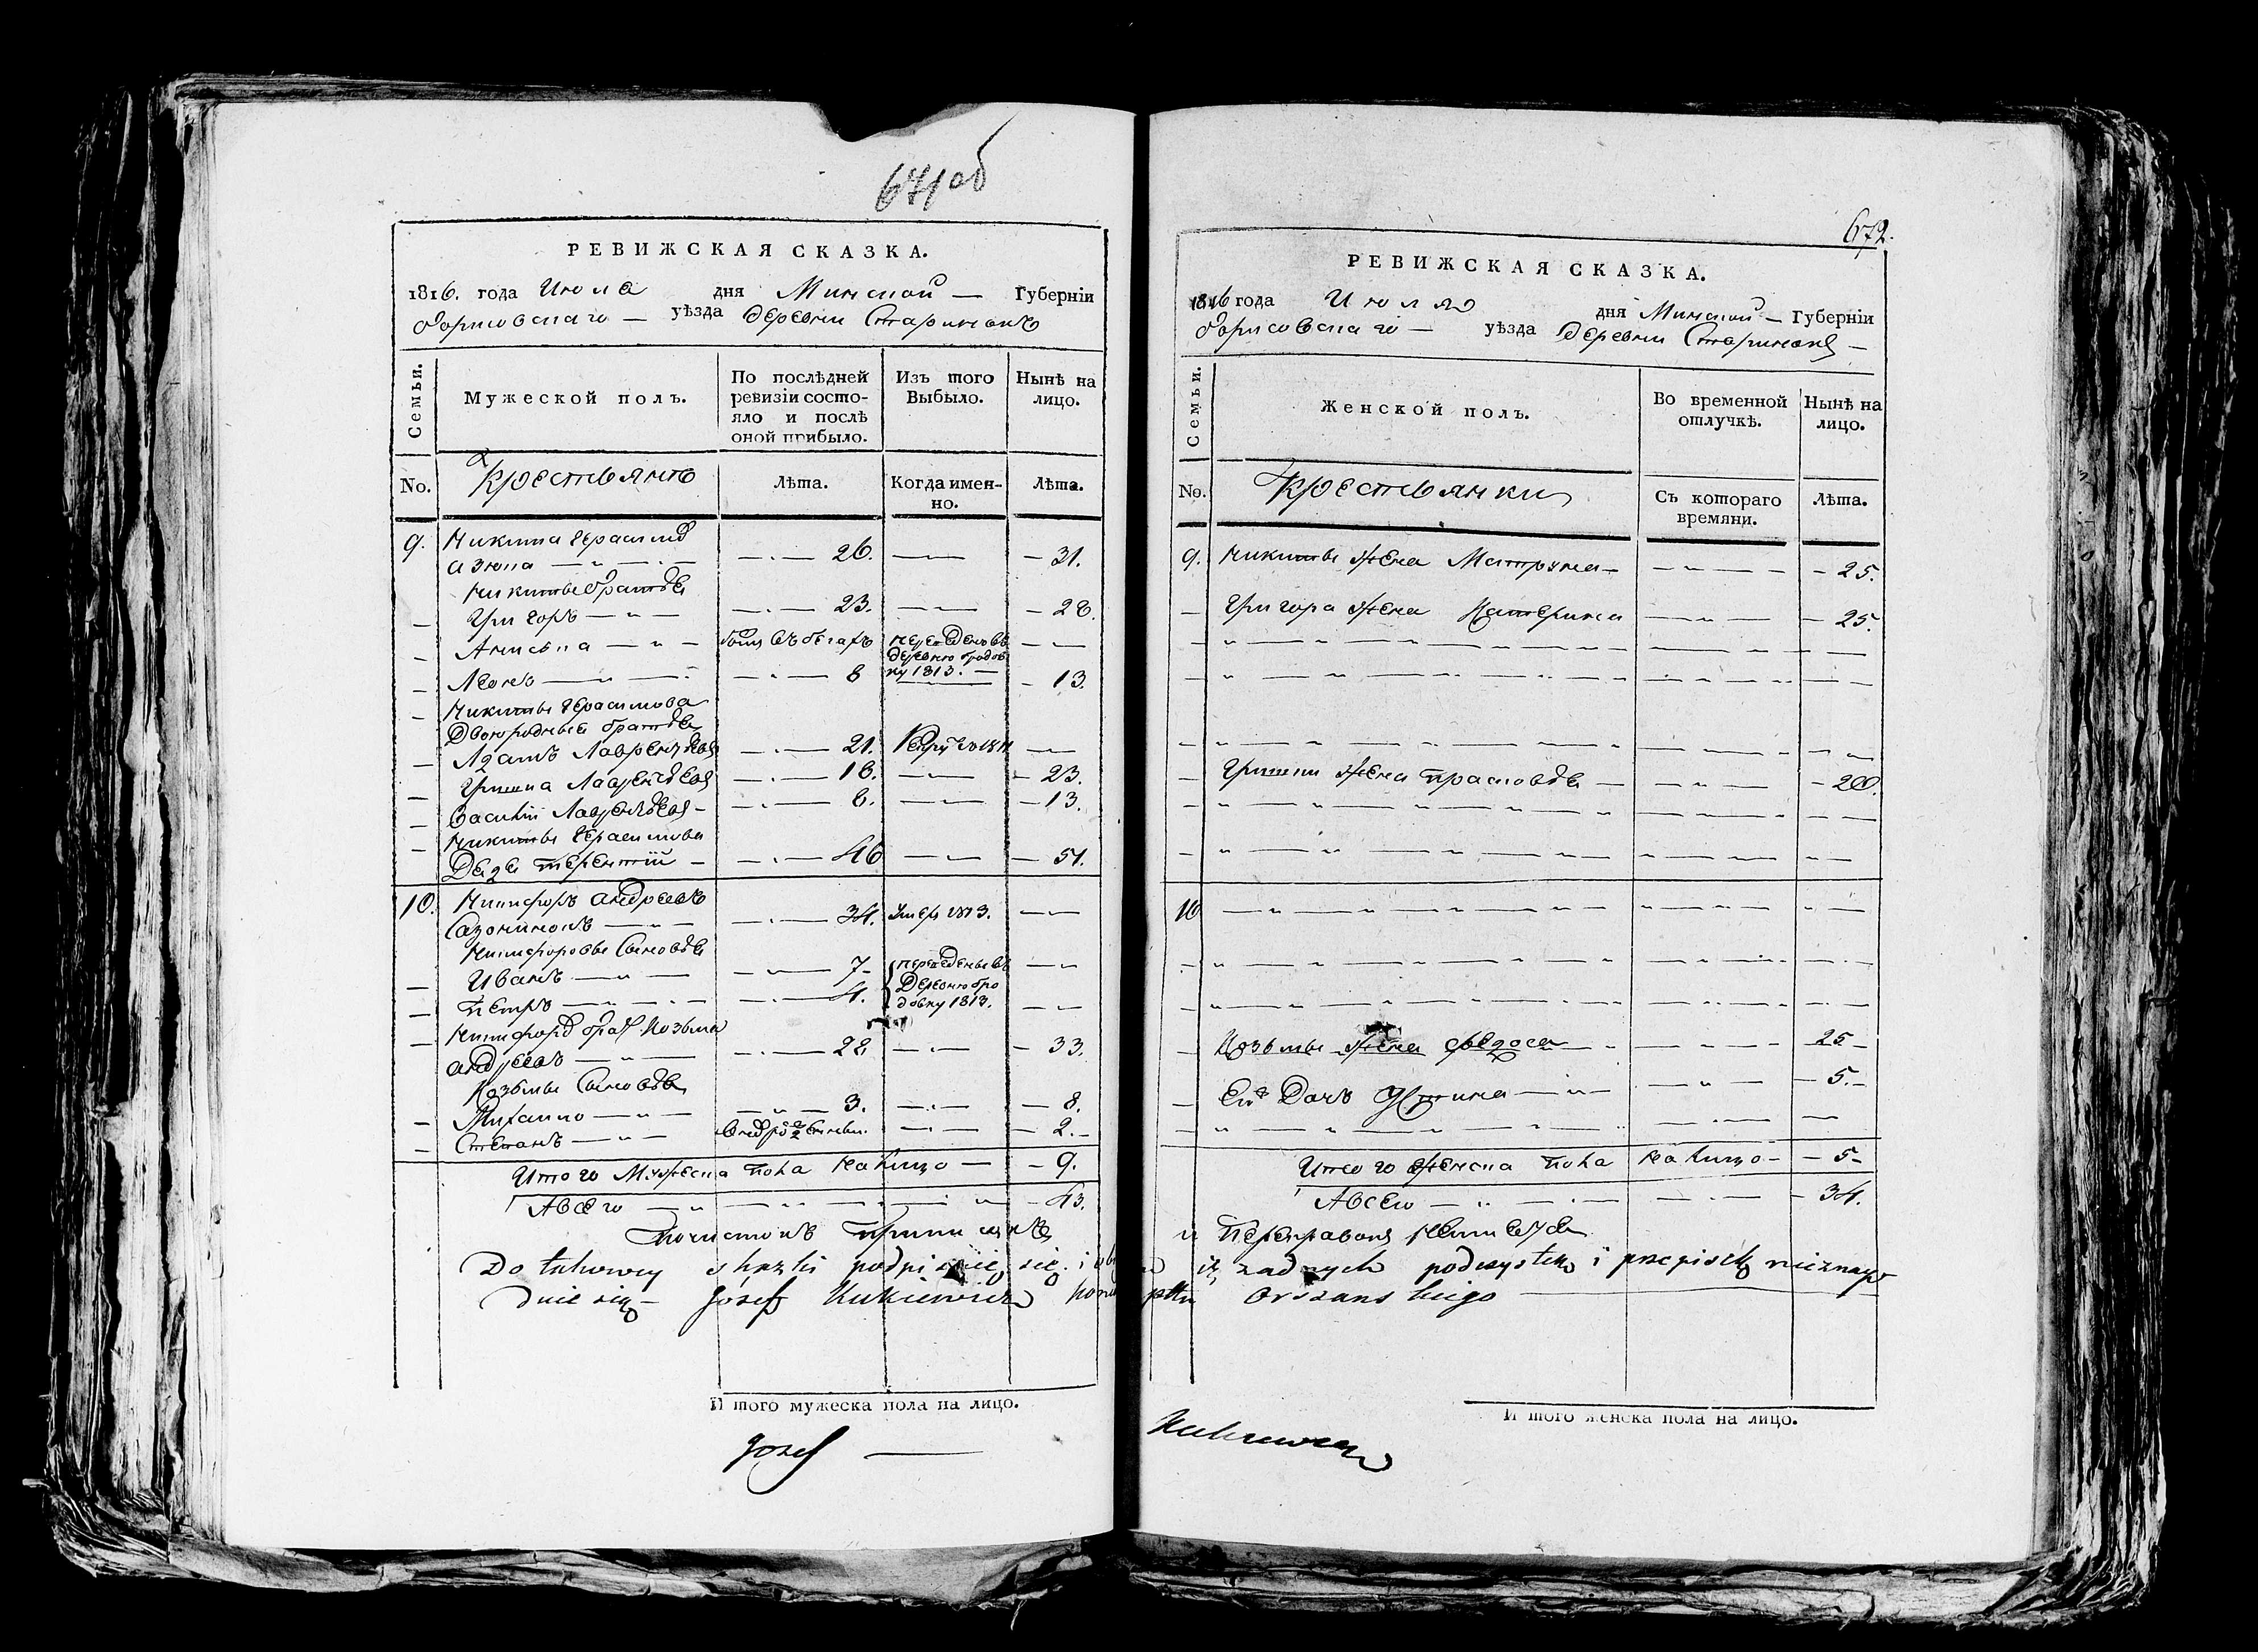 671об
РЕВИЖСКАЯ СКАЗКА.
1816. года Июля дня Минской — Губерніи
Борисовскаго — уѣзда деревни Старинокъ
Семьи.
Мужеской полъ.
По послѣдней ревизіи состо-
яло и послѣ
оной прибыло.
Изъ того
Выбыло.
Нынѣ на
лицо.
No.
Крестьянъ
лѣта.
Когда имен-
но.
лѣта.
9. Никита Герасимов
26. — 31.
Никиты братья
Григоръ — 23. — 28.
Анисько — былъ въ бегахъ переведенъ въ
деревню Бродов-
ку 1813.
Леонъ — 8 — 13.
Никиты Герасимова
Двоюродные братья
Адамъ Лаврентьевъ — 21.
Гришка Лаврентьевъ — 18. — 23.
Василій Лаврентьевъ — 8. — 13.
Никиты Герасимова
Дядя Терентій — 46 — 51.
10. Никифоръ Андреевъ
— 34. умеръ 1813.
Никифоровы Сыновья
Иванъ — 7 — переведены въ
Петръ — 4. Деревню Бро
довку 1813.
Никифора братъ Козьма
Андреевъ — 28 — 33.
Козьмы Сыновья
Михайло — 3. — 8.
Степанъ — — 2.
Итого Мужеска пола на лицо — 9.
А всего — 43.
Почистокъ приписокъ
Do takowey skazki podpisuię się i
duie się — Józef Kukiewicz
И того мужеска пола на лицо.
Jozef
672.
РЕВИЖСКАЯ СКАЗКА.
1816 года Июля дня Минской — Губерніи
Борисовскаго — уѣзда деревни Старинокъ —
Семьи.
Женской полъ.
Во временной
отлучкѣ.
Нынѣ на
лицо.
No.
Крестьянки
Съ котораго
времяни.
лѣта.
9. Никиты жена Матруна — 25.
Григора жена Катерина — 25.
Гришки жена Прасковья — 20.
10
Козьмы жена Федося — 25
Ея Дочь Устина — 5.
Итого женска пола на лицо — 5
А всего — 34.
и переправокъ неимеется
iż żadnych podczystek i przepisek nieznay
Orszanskiego
И того женска пола на лицо.
Kukiewicz